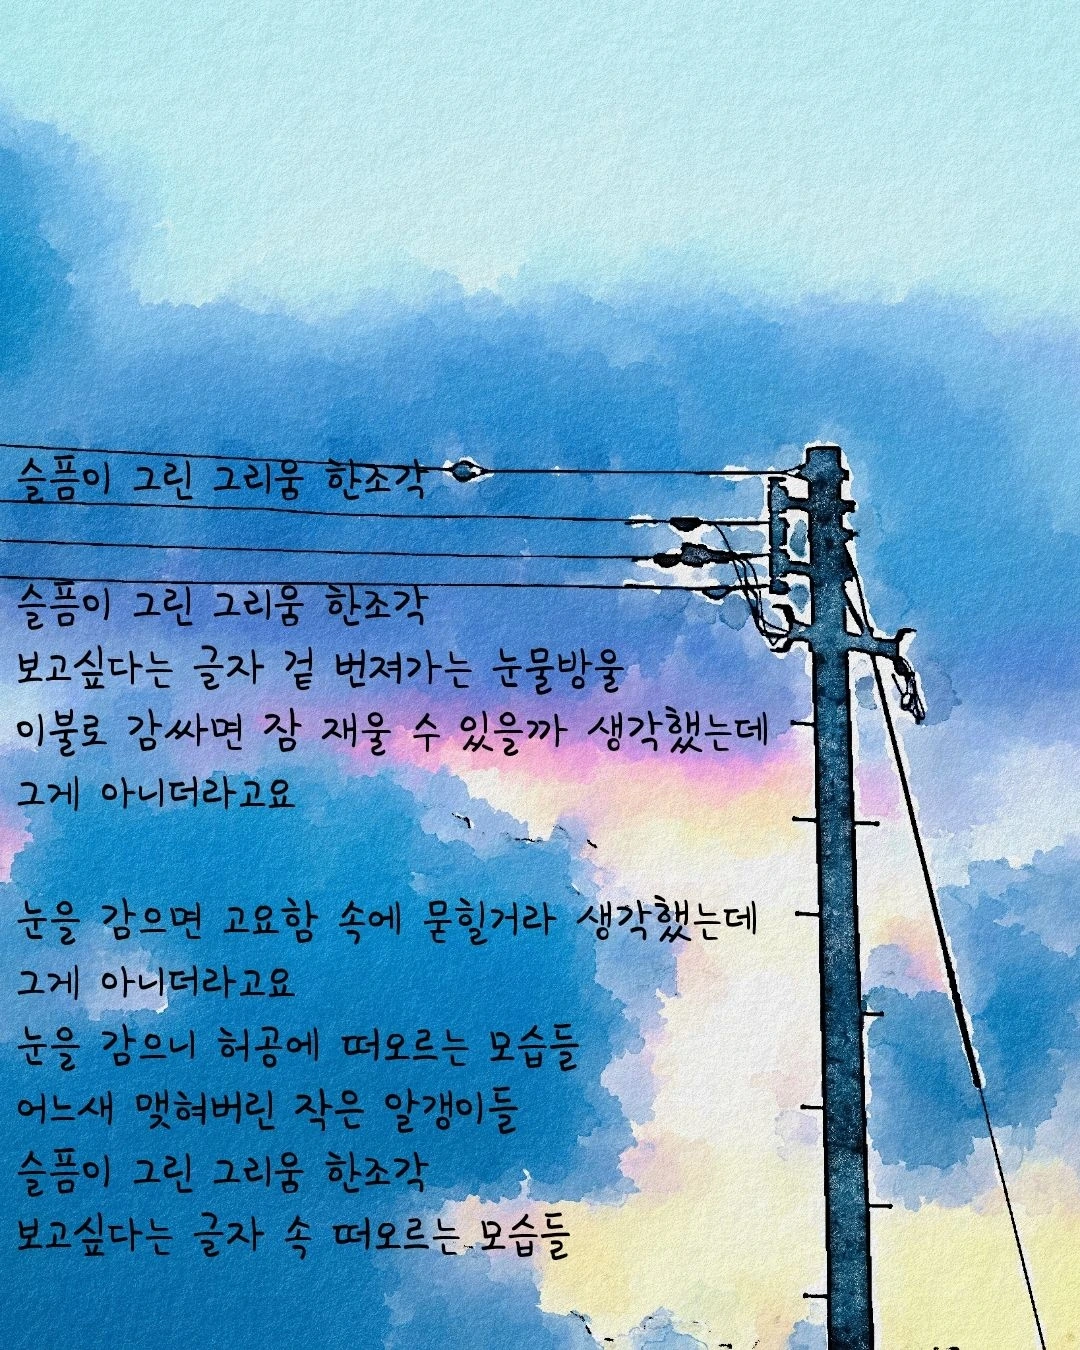 슬픔이 그린 그리움 한조각
슬픔이 그린 그리움 한조각
보고싶다는 글자 겉 번져가는 눈물방울
이불로 감싸면 잠 재울 수 있을까 생각했는데
그게 아니더라고요
눈을 감으면 고요함 속에 묻힐거라 생각했는데
그게 아니더라고요
눈을 감으니 허공에 떠오르는 모습들
어느새 맺혀버린 작은 알갱이들
슬픔이 그린 그리움 한조각
보고싶다는 글자 속 떠오르는 모습들